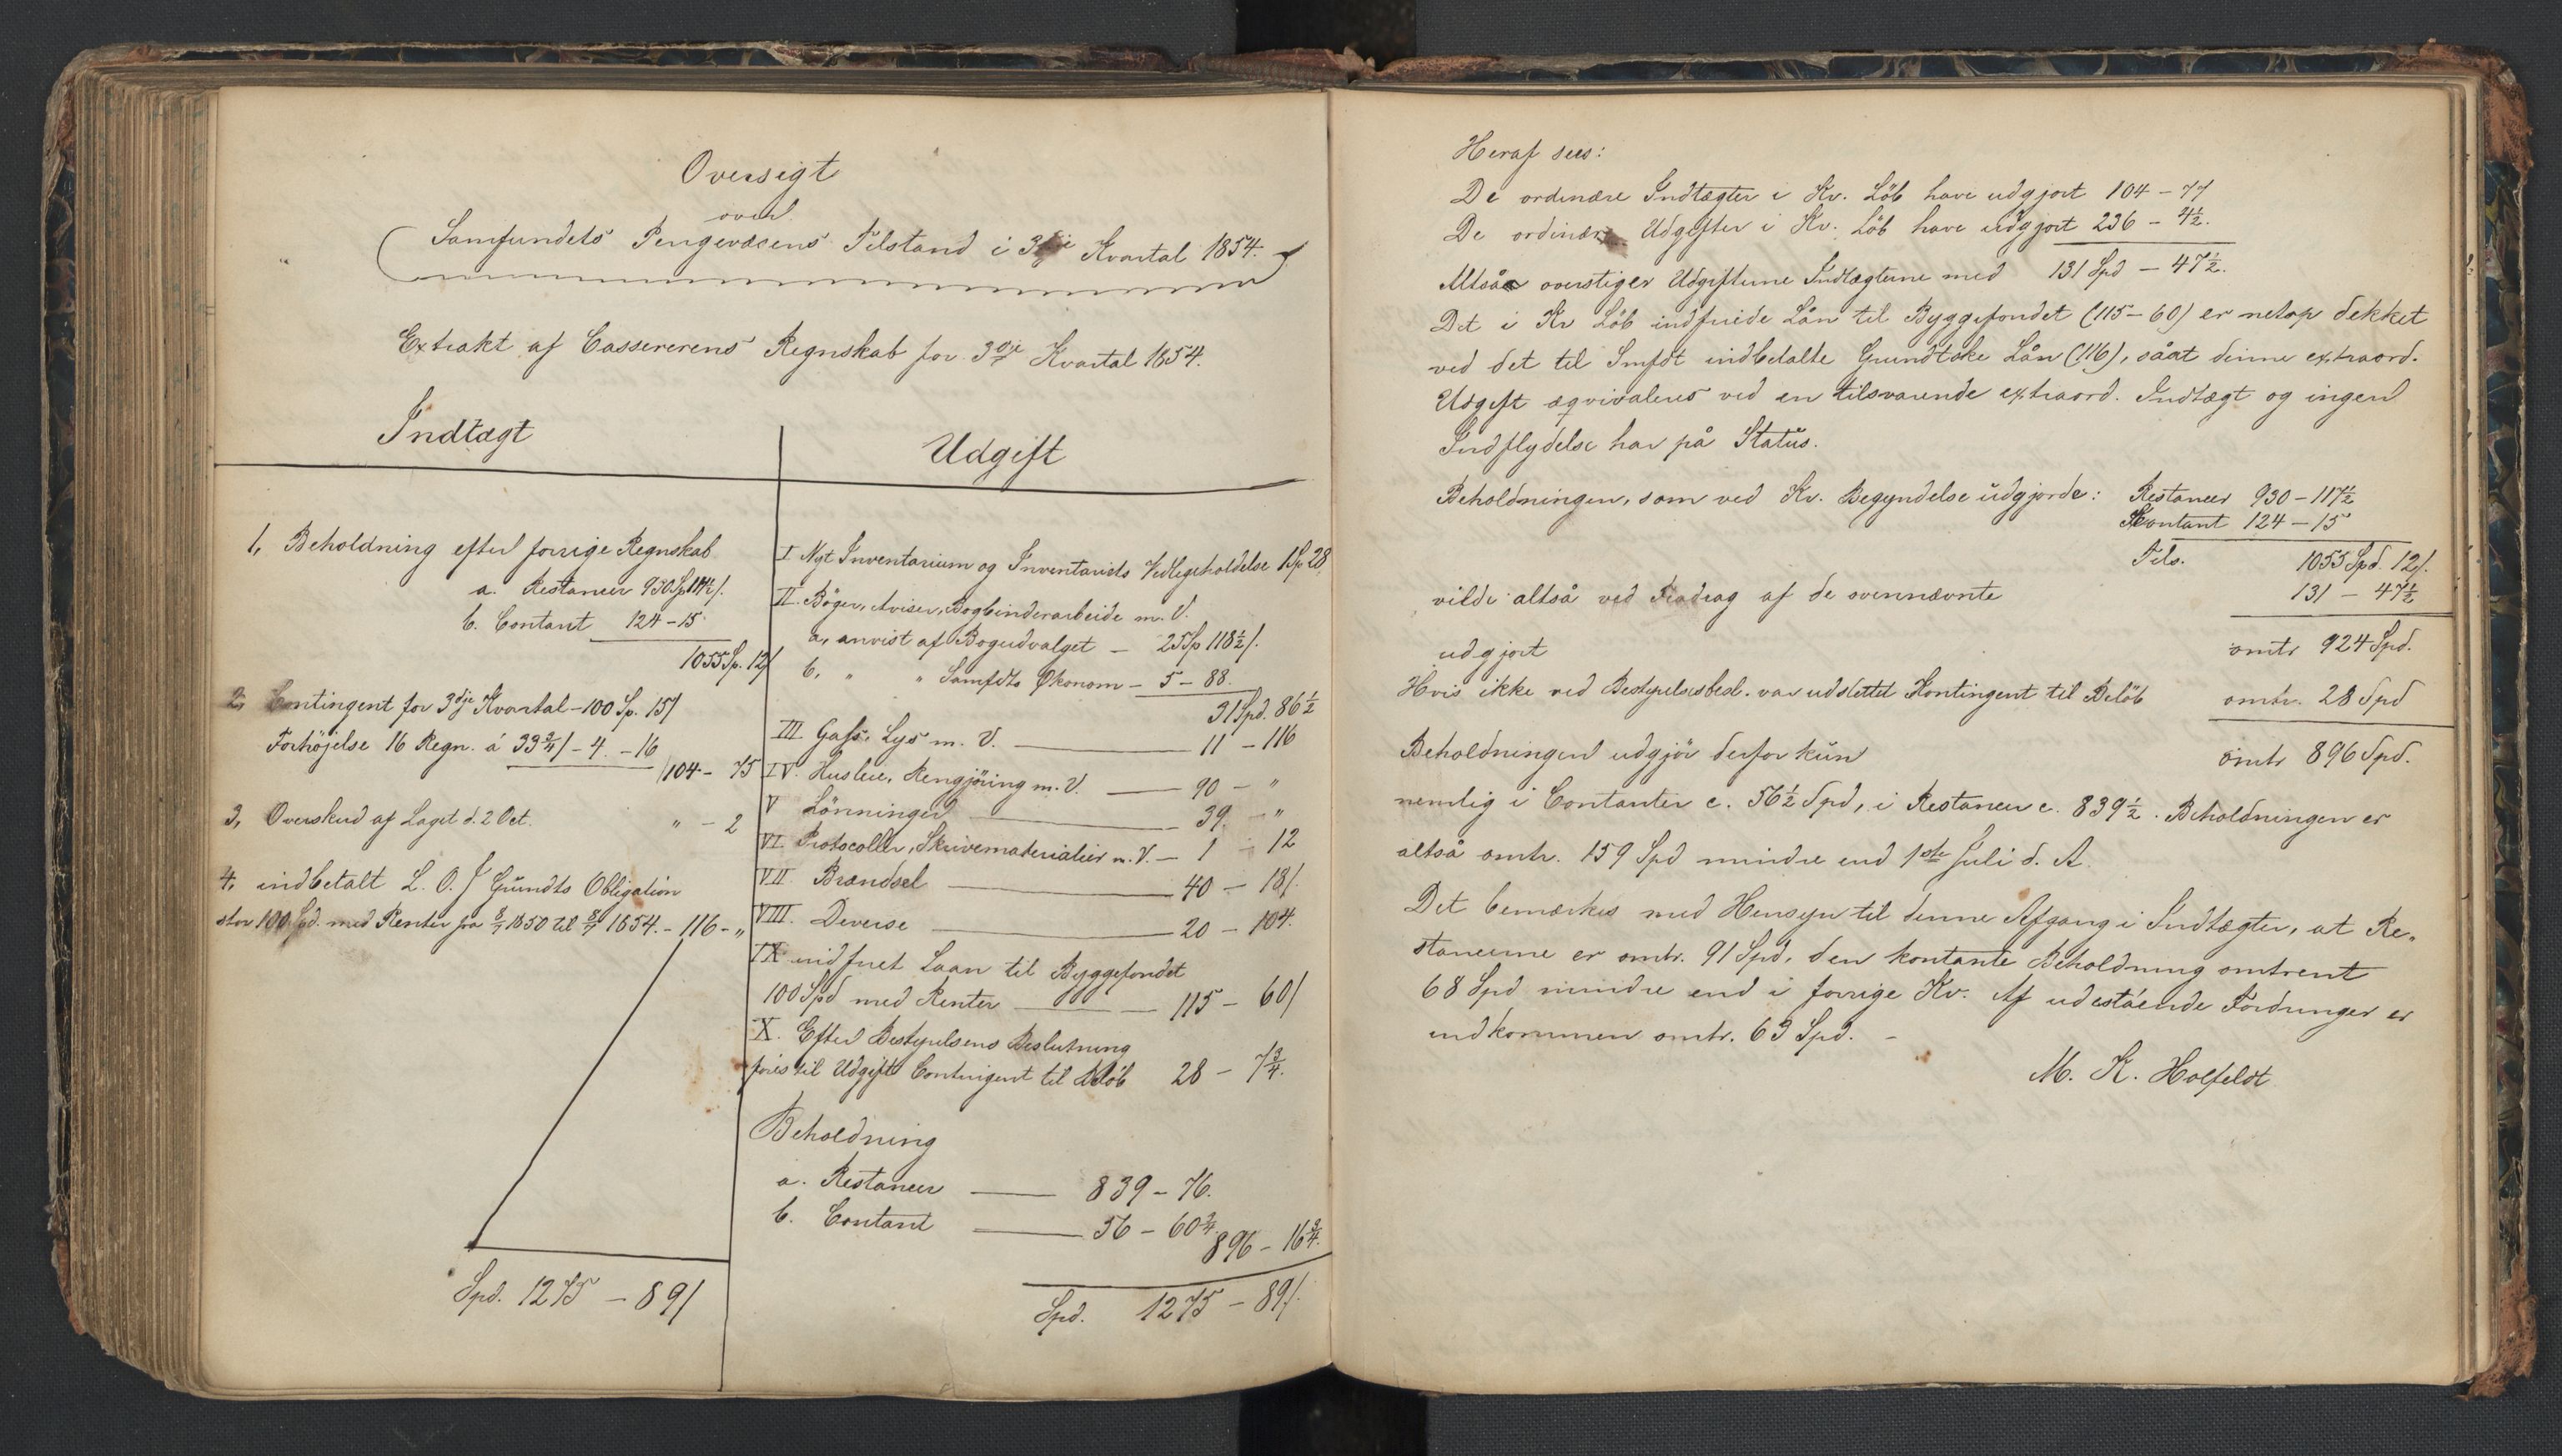 Oversigt
over
Samfundets Pengevæsens Tilstand i 3dje Kvartal 1854.
Extrakt af Cassererens Regnskab for 3dje Kvartal 1854.
Indtægt
1, Beholdning efter forrige Regnskab
a. Restancer 930 Sp 117½ /.
b. Contant 124 - 15.
1055 Sp. 12/
2, Contingent for 3dje Kvartal - 100 Sp. 15/
Forhöjelse 16 Regn. á 33¾/ - 4 - 16
104 - 75
3, Overskud af Laget d. 2 Oct. " - 2
4, indbetalt L. O. Grundts Obligation
stor 100 Spd. med Renter fra 8/7 1850 til 8/7 1854. - 116 - "
Spd. 1275 - 89/
Udgift
I Nyt Inventarium og Inventariets Vedligeholdelse 1 Sp 28
II. Bøger, Aviser, Bogbinderarbeide m. V.
a, anvist af Bogudvalget - 25 Sp 118½ /.
b, " " Samfdts Økonom - 5 - 88.
31 Spd. 86½
III. Gas, Lys m. V. 11 - 116
IV. Husleie, Rengjöring m. V. 90 - "
V Lönninger 39 - "
VI. Protocoller, Skrivematerialier m. V. - 1 - 12
VII. Brændsel 40 - 18/.
VIII. Diverse 20 - 104.
IX indfriet Laan til Byggefondet
100 Spd med Renter 115 - 60/
X. Efter Bestyrelsens Beslutning
föres til Udgift Contingent til Beløb 28 - 7¾.
Beholdning
a. Restancer 839 - 76.
b. Contant 56 - 60¾.
896 - 16¾.
Spd. 1275 - 89/.
Heraf sees:
De ordinære Indtægter i Kv. Löb have udgjort 104 - 77
De ordinære Udgifter i Kv. Löb have udgjort 236 - 4½.
Altsaa overstiger Udgifterne Indtægterne med 131 Spd - 47½.
Det i Kv Löb indfriede Lån til Byggefondet (115 - 60) er netop dekket
ved det til Smfdt indbetalte Grundtske Lån (116), såat denne extraord.
Udgift æqvivaleres ved en tilsvarende extraord. Indtægt og ingen
Indflydelse har på Status.
Beholdningen, som ved Kv. Begyndelse udgjorde: Restancer 930 - 117½
Kontant 124 - 15
Tils. 1055 Spd. 12/.
vilde altså ved Fradrag af de ovennævnte 131 - 47½
udgjort omtr 924 Spd.
Hvis ikke ved Bestyrelsesbesl. var udslettet Kontingent til Beløb omtr. 28 Spd
Beholdningen udgjör derfor kun omtr 896 Spd.
nemlig i Contanter c. 56½ Spd, i Restancer c. 839½. Beholdningen er
altså omtr. 159 Spd mindre end 1ste Juli d. A.
Det bemærkes med Hensyn til denne Afgang i Indtægter, at Re-
stancerne er omtr. 91 Spd, den kontante Beholdning omtrent
68 Spd mindre end i forrige Kv. Af udestående Fordringer er
indkommen omtr. 63 Spd. -
M. K. Holfeldt